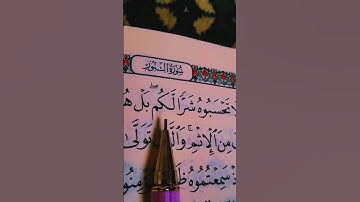 سُورَةُ النُّورِ
تَحْسَبُوهُ شَرًّا لَّكُم ۖ بَلْ هُ
مِنَ الْإِثْمِ ۚ وَالَّ تَوَلَّىٰ
سَمِعْتُمُوهُ ظَ